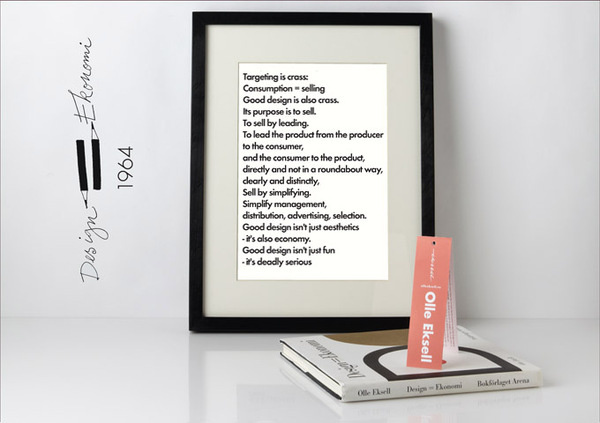 Design = Ekonomi
1964
Targeting is crass:
Consumption = selling
Good design is also crass.
Its purpose is to sell.
To sell by leading.
To lead the product from the producer
to the consumer,
and the consumer to the product,
directly and not in a roundabout way,
clearly and distinctly,
Sell by simplifying.
Simplify management,
distribution, advertising, selection.
Good design isn't just aesthetics
- it's also economy.
Good design isn't just fun
- it's deadly serious
Olle Eksell
Design = Ekonomi
Olle Eksell Design = Ekonomi Bokförlaget Arena